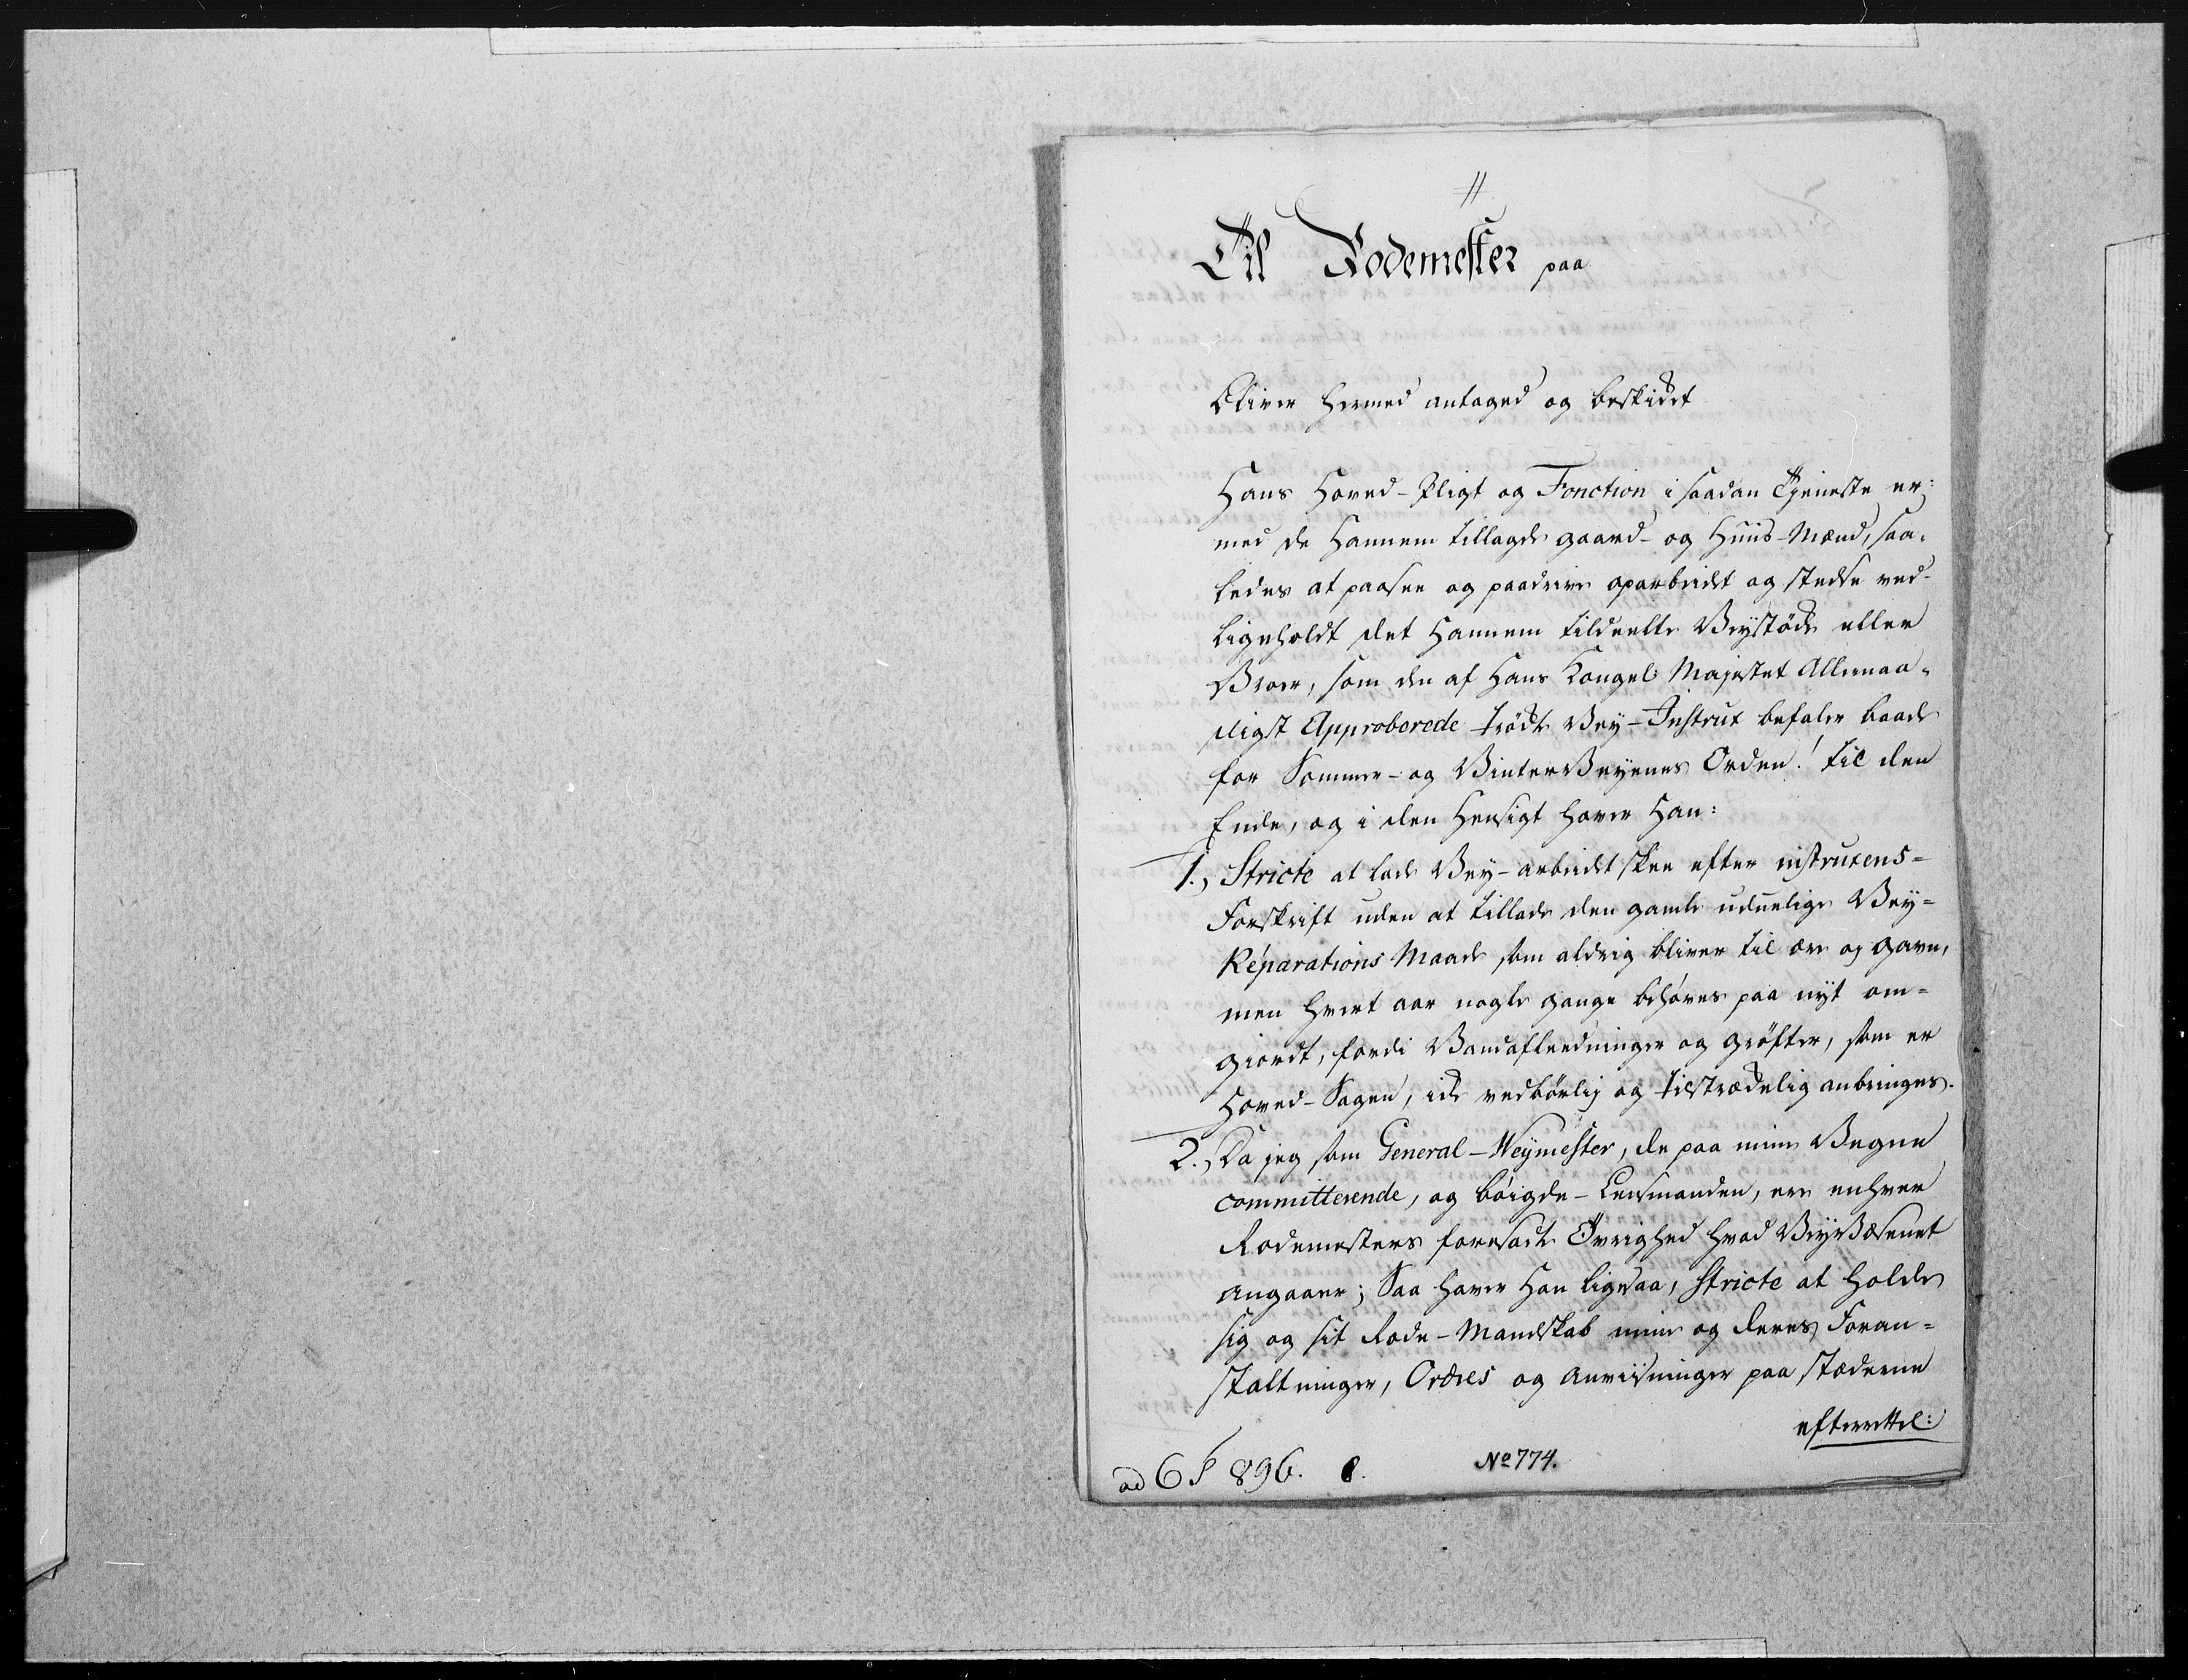 Til Rodemester paa
Bliver hermed antaged og beskikket
Hans Hoved-Pligt og Fonction i saadan Tjeneste er:
med de Hannem tillagde gaard- og Huus-Mænd, saa-
ledes at paasee og paadrive oparbeidet og stedse ved-
ligeholdt det Hannem tildeelte Veystökke eller
Broer, som den af Hans Kongel: Majestet Allernaa-
digst Approberede trökte Vey-Instrux befaler baade
for Sommer- og VinterVeyenes Orden! til den
Ende, og i den Hensigt haver Han:
1., Stricte at lade Vey-arbeidet skee efter instruxens-
Forskrift uden at tillade den gamle uduelige Vey-
Reparations Maade som aldrig bliver til ære og gavn,
men hvert aar nogle gange behøves paa nyt om-
giordt, fordi Vandafleedninger og grøfter, som er
Hoved-Sagen, icke vedbørlig og tilstrækkelig anbringes.
2., Da jeg som General-Veymester, de paa mine Vegne
committerende, og böigde-Lensmanden, ere enhver
Rodemesters foresadte Övrighed hvad VeyVæsenet
angaaer; Saa haver Han ligesaa, Stricte at holde
sig og sit Rode-Mandskab mine og deres Foran-
staltninger, Ordres og Anviisninger paa stæderne
efterrettel:
ad 6 S 896. e. No 774.